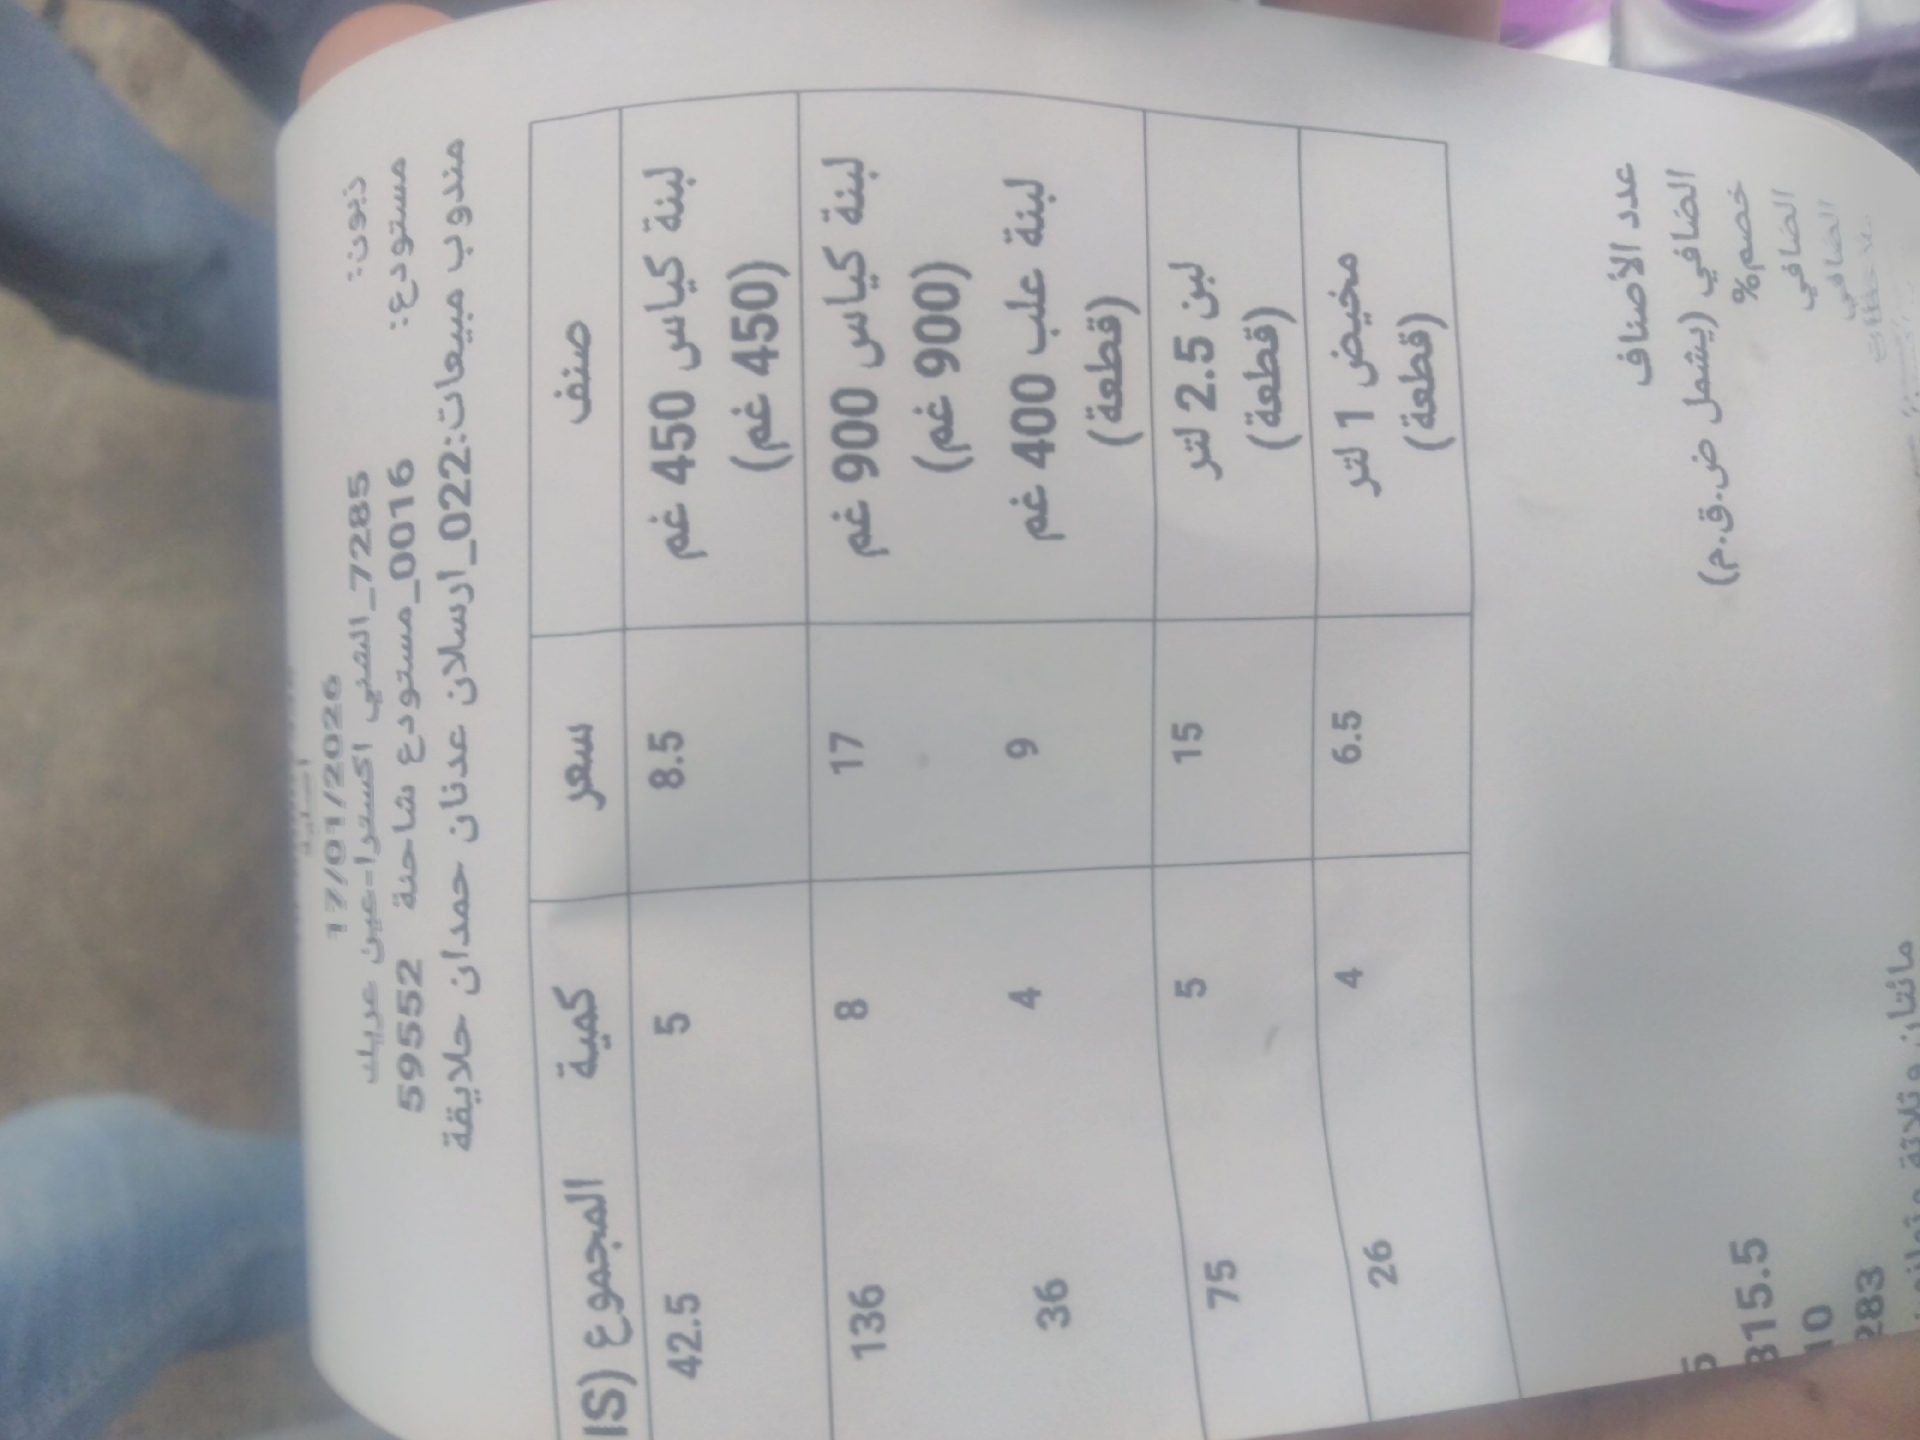 17/01/2026
زبون: 7285_الشني اكسترا-عين عريك
مستودع: 0016_مستودع شاحنة 59552
مندوب مبيعات:022_ارسلان عدنان حمدان حلايقة
صنف سعر كمية المجموع (IS
لبنة كياس 450 غم (450 غم) 8.5 5 42.5
لبنة كياس 900 غم (900 غم) 17 8 136
لبنة علب 400 غم (قطعة) 9 4 36
لبن 2.5 لتر (قطعة) 15 5 75
مخيض 1 لتر (قطعة) 6.5 4 26
عدد الأصناف 5
الصافي (يشمل ض.ق.م) 315.5
خصم% 10
الصافي 283
الصافي
مائتان وثلاثة وثمانون